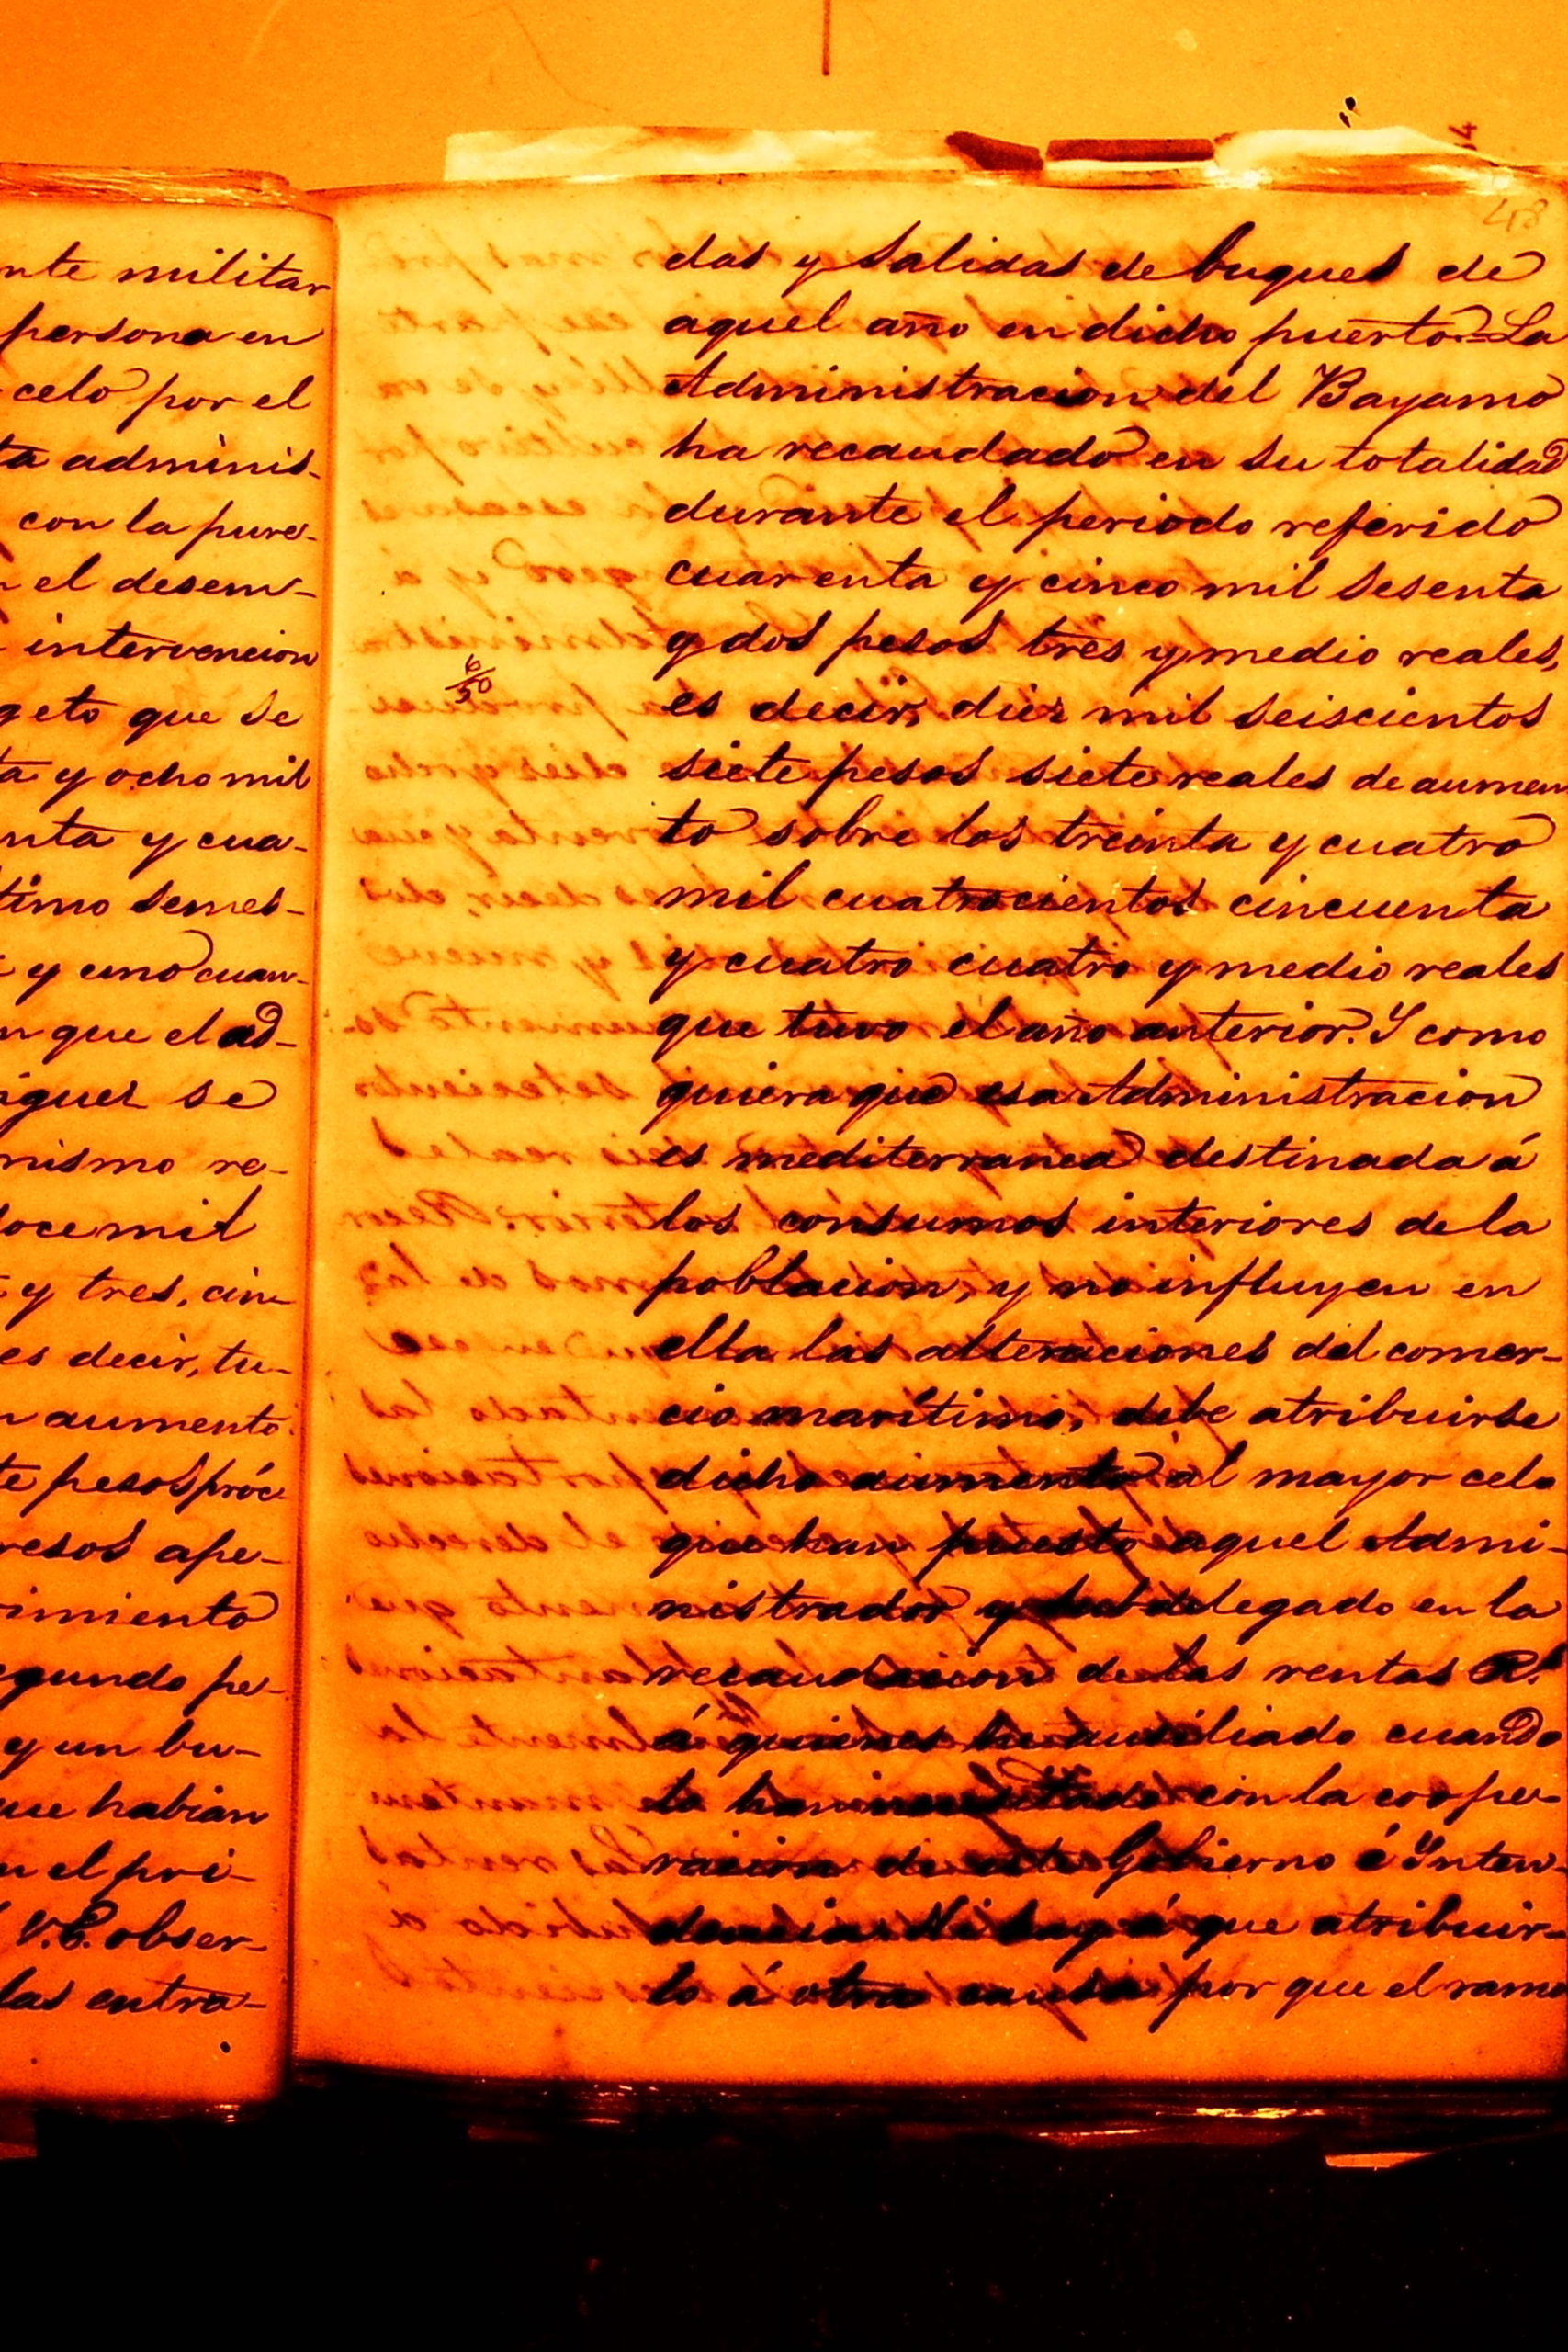 nte militar
persona en
celo por el
ta adminis-
con la pure-
el desem-
intervencion
geto que se
ta y ocho mil
nta y cua-
timo semes-
y uno cuan-
n que el ad-
iguez se
mismo re-
doce mil
y tres, cin-
es decir, tu-
n aumento
te pesos próc
resos ape-
imiento
egundo pe-
y un bu-
ue habian
n el pri-
V.E. obser-
las entra-
48
das y salidas de buques de
aquel año en dicho puerto.=La
Administracion del Bayamo
ha recaudado en su totalidad
durante el periodo referido
cuarenta y cinco mil sesenta
y dos pesos tres y medio reales,
6/50
es decir, diez mil seiscientos
siete pesos siete reales de aumen
to sobre los treinta y cuatro
mil cuatrocientos cincuenta
y cuatro cuatro y medio reales
que tuvo el año anterior. Y como
quiera que esa Administracion
es mediterranea destinada á
los consumos interiores de la
poblacion, y no influyen en
ella las alteraciones del comer-
cio marítimo, debe atribuirse
dicho aumento al mayor celo
que han puesto aquel Admi-
nistrador y Subdelegado en la
recaudacion de las rentas R.^s
á quienes he ausiliado cuando
lo han necesitado con la coope-
racion de este Gobierno é Inten
dencia. Ni hay á que atribuir-
lo á otra causa por que el ramo